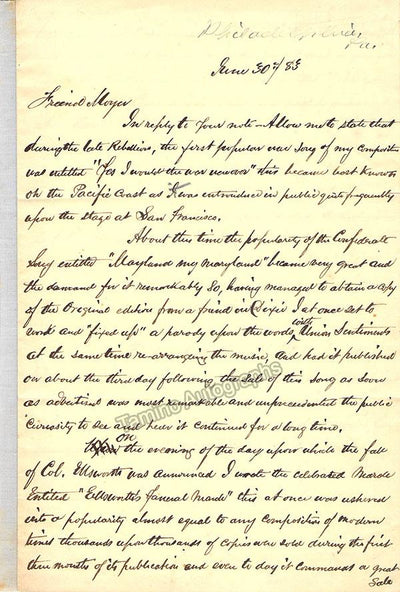 Philadelphia,
Pa.
June 30th/83
Friend Moyer
In reply to your note – Allow me to state that
during the late Rebellion, the first popular war song of my composition
was entitled "Yes I would the war were over" this became best known
on the Pacific Coast as it was introduced in public quite frequently
upon the stage at San Francisco.
About this time the popularity of the Confederate
Song entitled "Maryland my Maryland" became very great and
the demand for it remarkably so, having managed to obtain a copy
of the Original edition from a friend in Dixie I at once set to
work and "fixed up" a parody upon the words, with Union Sentiments
at the same time re-arranging the music, and had it published
on about the third day following the sale of this song as soon
as advertised was most remarkable and unprecedented the public
curiosity to see and hear it continued for a long time.
on the evening of the day upon which the fall
of Col. Ellsworth was announced I wrote the celebrated March
Entitled "Ellsworth's Funeral March" this at once was ushered
into a popularity almost equal to any composition of modern
times thousands upon thousands of copies were sold during the first
three months of its publication and even to day it commands a great
Sale
Tamino Autographs